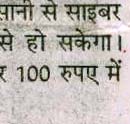 सानी से साइबर
से हो सकेगा।
100 रुपए में